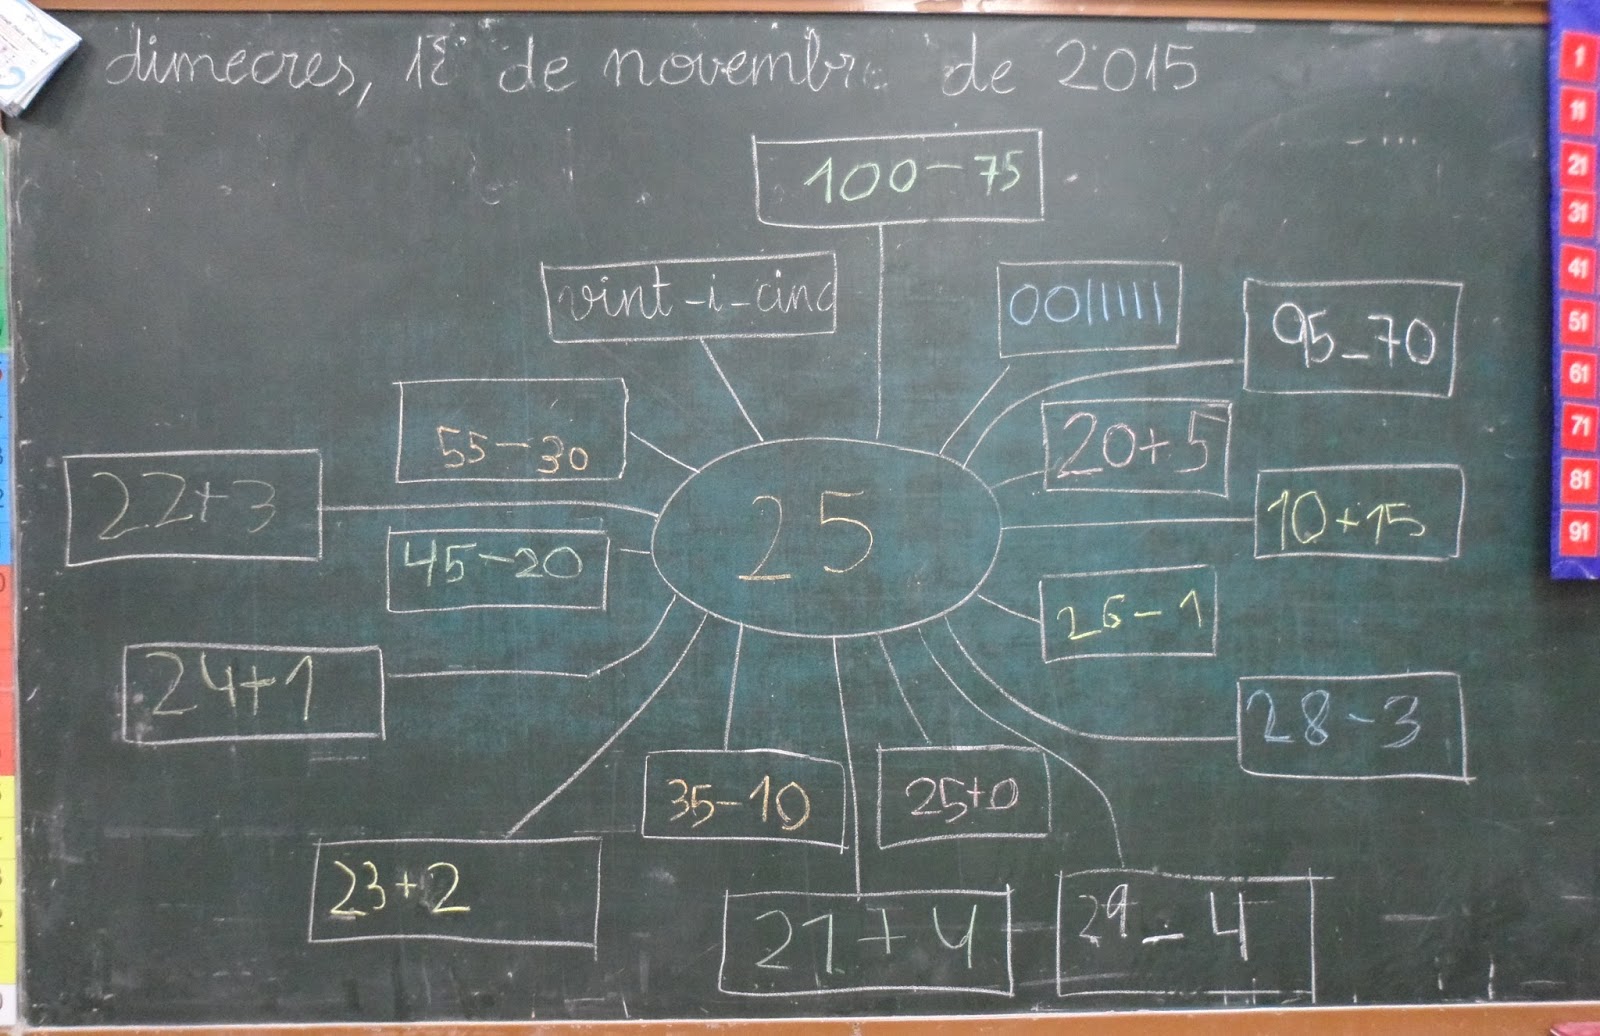 dimecres, 18 de novembre de 2015
100-75
vint-i-cinc
00||||||
95-70
55-30
20+5
22+3
10+15
25
45-20
26-1
24+1
28-3
35-10
25+0
23+2
21+4
29-4
1
11
21
31
41
51
61
71
81
91